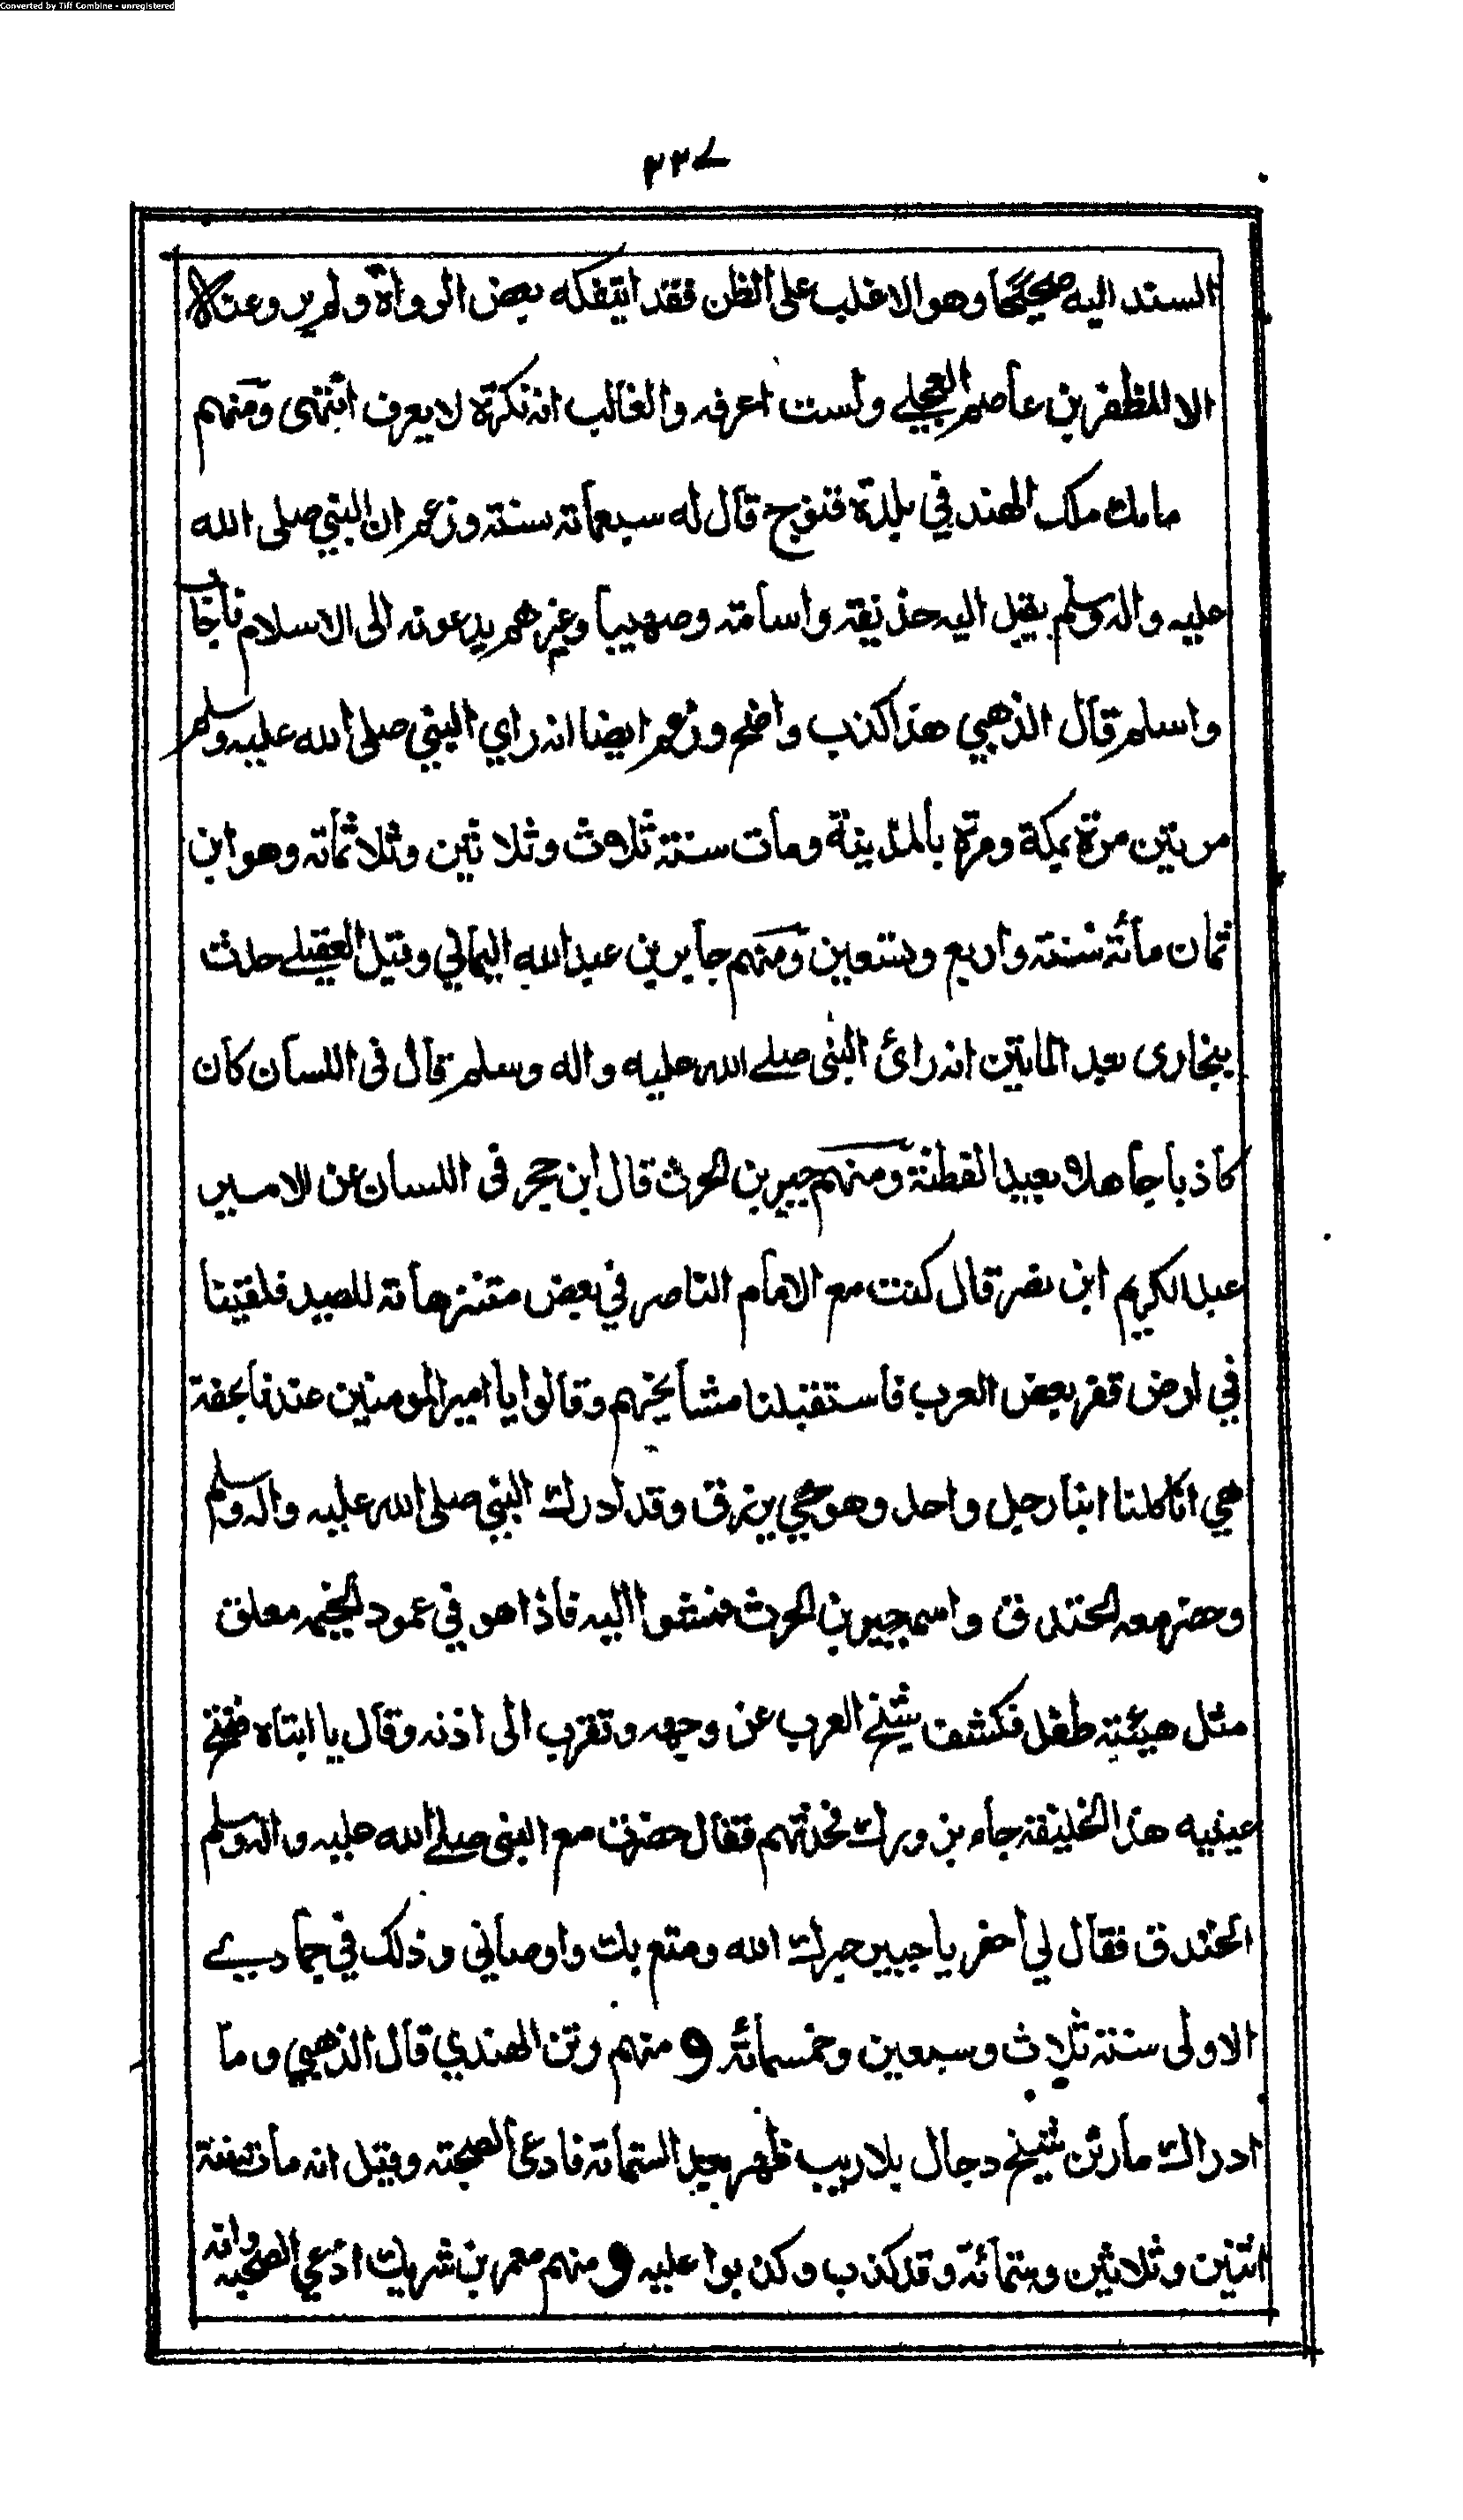 Converted by Tiff Combine - unregistered
٢٣٧
السند اليه صحيحا وهو الاغلب على الظن فقد ايتفكه بعض الرواة ولم يرو عنه
الا المظفر بن عاصم العجلي ولست اعرفه والغالب انه نكرة لا يعرف انتهى ومنهم
مابك ملك الهند في بلدة قنوج قال له سبعماته سنته وزعم ان النبي صلى الله
عليه واله وسلم يقبل اليه حذيفه واسامته وصهيبا وغيرهم يدعونه الى الاسلام فاجاب
واسلم قال الذهبي هذا كذب واضح وزعم ايضا انه راي النبي صلى الله عليه وسلم
مرتين مرة بمكة ومرة بالمدينة ومات سنته ثلاث وثلاثين وثلاثماته وهو ابن
ثمان مائة سنته واربع وتسعين ومنهم جابر بن عبد الله اليماني وقيل العقيلي حدث
ببخارى بعد الماتين انه رائ النبي صلے الله عليه واله وسلم قال فى اللسان كان
كاذبا جاهلا بعيد الفطنة ومنهم جبير بن الحرث قال ابن حجر فى اللسان عن الامير
عبد الكريم ابن نصر قال كنت مع الامام الناصر في بعض متنزهاته للصيد فلقينا
في ارض قفر بعض العرب فاستقبلنا مشايخهم وقالوا يا امير المومنين عندنا تحفة
هي انا كلنا ابنا رجل واحد وهو حي يرزق وقد ادرك النبي صلى الله عليه واله وسلم
وحضر معه الخندق واسمه جبير بن الحرث فمشوا اليه فاذا هو في عمود الخيمه معلق
مثل هيئته طفل فكشف شيخ العرب عن وجهه وتقرب الى اذنه وقال يا ابتاه ففتح
عينيه هذا الخليفة جاء يزورك فحدثهم فقال حضرت مع النبي صلے الله عليه واله وسلم
الخندق فقال لي احفر يا جبير جبرك الله ومتع بك واوصاني وذلك في جمادى
الاولى سنته ثلاث وسبعين وخمسمائه ومنهم رتن الهندي قال الذهبي وما
ادراك مارتن شيخ دجال بلا ريب ظهر بعد الستماته فادعى الصحبته وقيل انه مات سنة
اثنين وثلاثين وستمائة وقد كذب وكذبوا عليه ومنهم معمر بن شريك ادعي الصحبه وانه